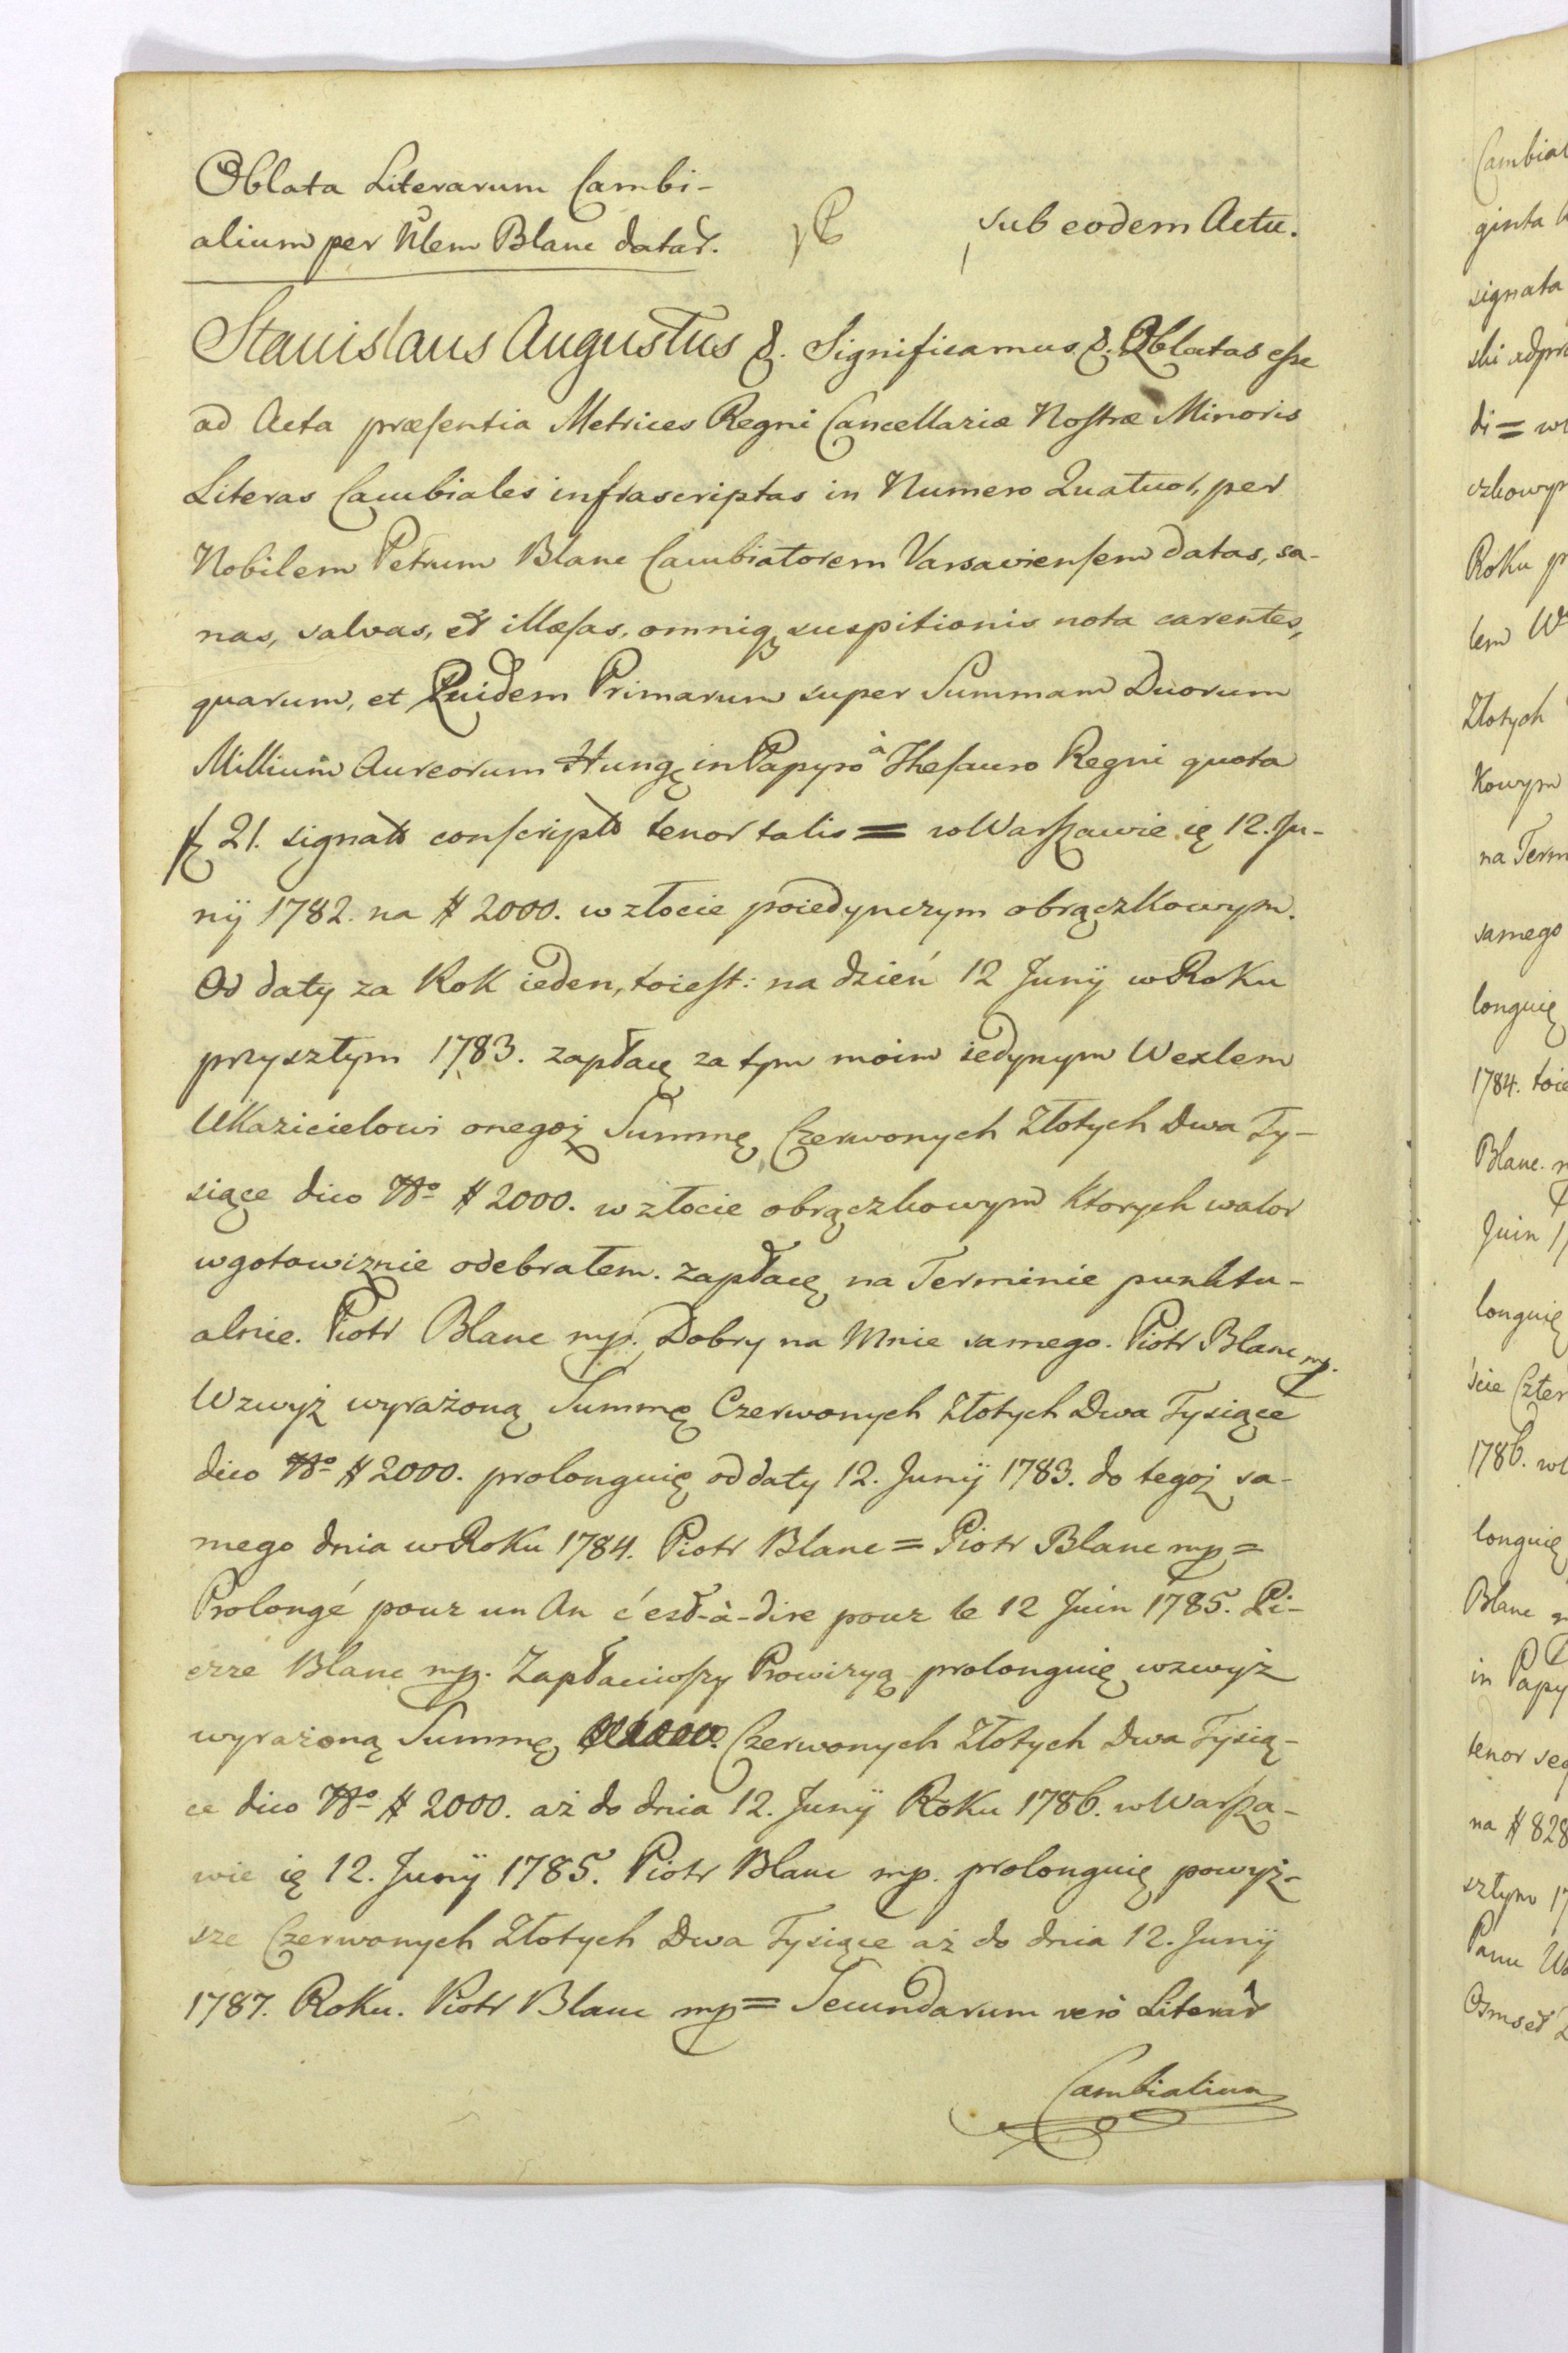 Oblata Literarum Cambi-
alium per Nlem Blanc datar.
sub eodem Actu.
Stanislaus Augustus &. Significamus &. Oblatas eſse
ad Acta præſentia Metrices Regni Cancellariæ Noſtræ Minoris
Literas Cambiales infrascriptas in Numero Quatuor, per
Nobilem Petrum Blanc Cambiatorem Varsavienſem datas, sa-
nas, salvas, et illæſas, omniq; suspitionis nota carentes,
quarum, et Quidem Primarum super Summam Duorum
Millium Aureorum Hung. in Papyro à Theſauro Regni quota
21. signato conſcripto tenor talis = w Warſzawie ię 12. Ju-
nij 1782. na # 2000. w złocie poiedynczym obrączkowym.
Od daty za Rok ieden, toieſt: na dzień 12 Junij w Roku
przyszłym 1783. zapłacę za tym moim iedynym Wexlem
Ukazicielowi onegoż Summę Czerwonych Złotych Dwa Ty-
siące dico No # 2000. w złocie obrączkowym ktorych walor
w gotowiznie odebrałem. zapłacę na Terminie punktu-
alnie. Piotr Blanc mp. Dobry na Mnie samego. Piotr Blanc mp.
Wzwyż wyrażoną Summę Czerwonych Złotych Dwa Tysiące
dico No # 2000. prolonguię od daty 12. Junij 1783. do tegoż sa-
mego dnia w Roku 1784. Piotr Blanc = Piotr Blanc mp =
Prolongé pour un An c'est-à-dire pour le 12 Juin 1785. Pi-
erre Blanc mp. Zapłaciwſzy Prowizyą prolonguię wzwyż
wyrażoną Summę Czerwonych Złotych Dwa Tysią-
ce dico No # 2000. aż do dnia 12. Junij Roku 1786. w Warſza-
wie ię 12. Junij 1785. Piotr Blanc mp. prolonguię powyż-
sze Czerwonych Złotych Dwa Tysiące aż do dnia 12. Junij
1787. Roku. Piotr Blanc mp = Secundarum verò Literar
Cambialium
Cambial
ginta
signata
ski adpr
di = w
czkowym
Roku p
lem W
Złotych
kowym
na Term
samego
longuię
1784. toie
Blanc. m
Juin 1
longuię
ście Czter
1786. w
longuię
Blanc
in Papy
tenor seq
na # 828
szłym 17
Panu
Osmset